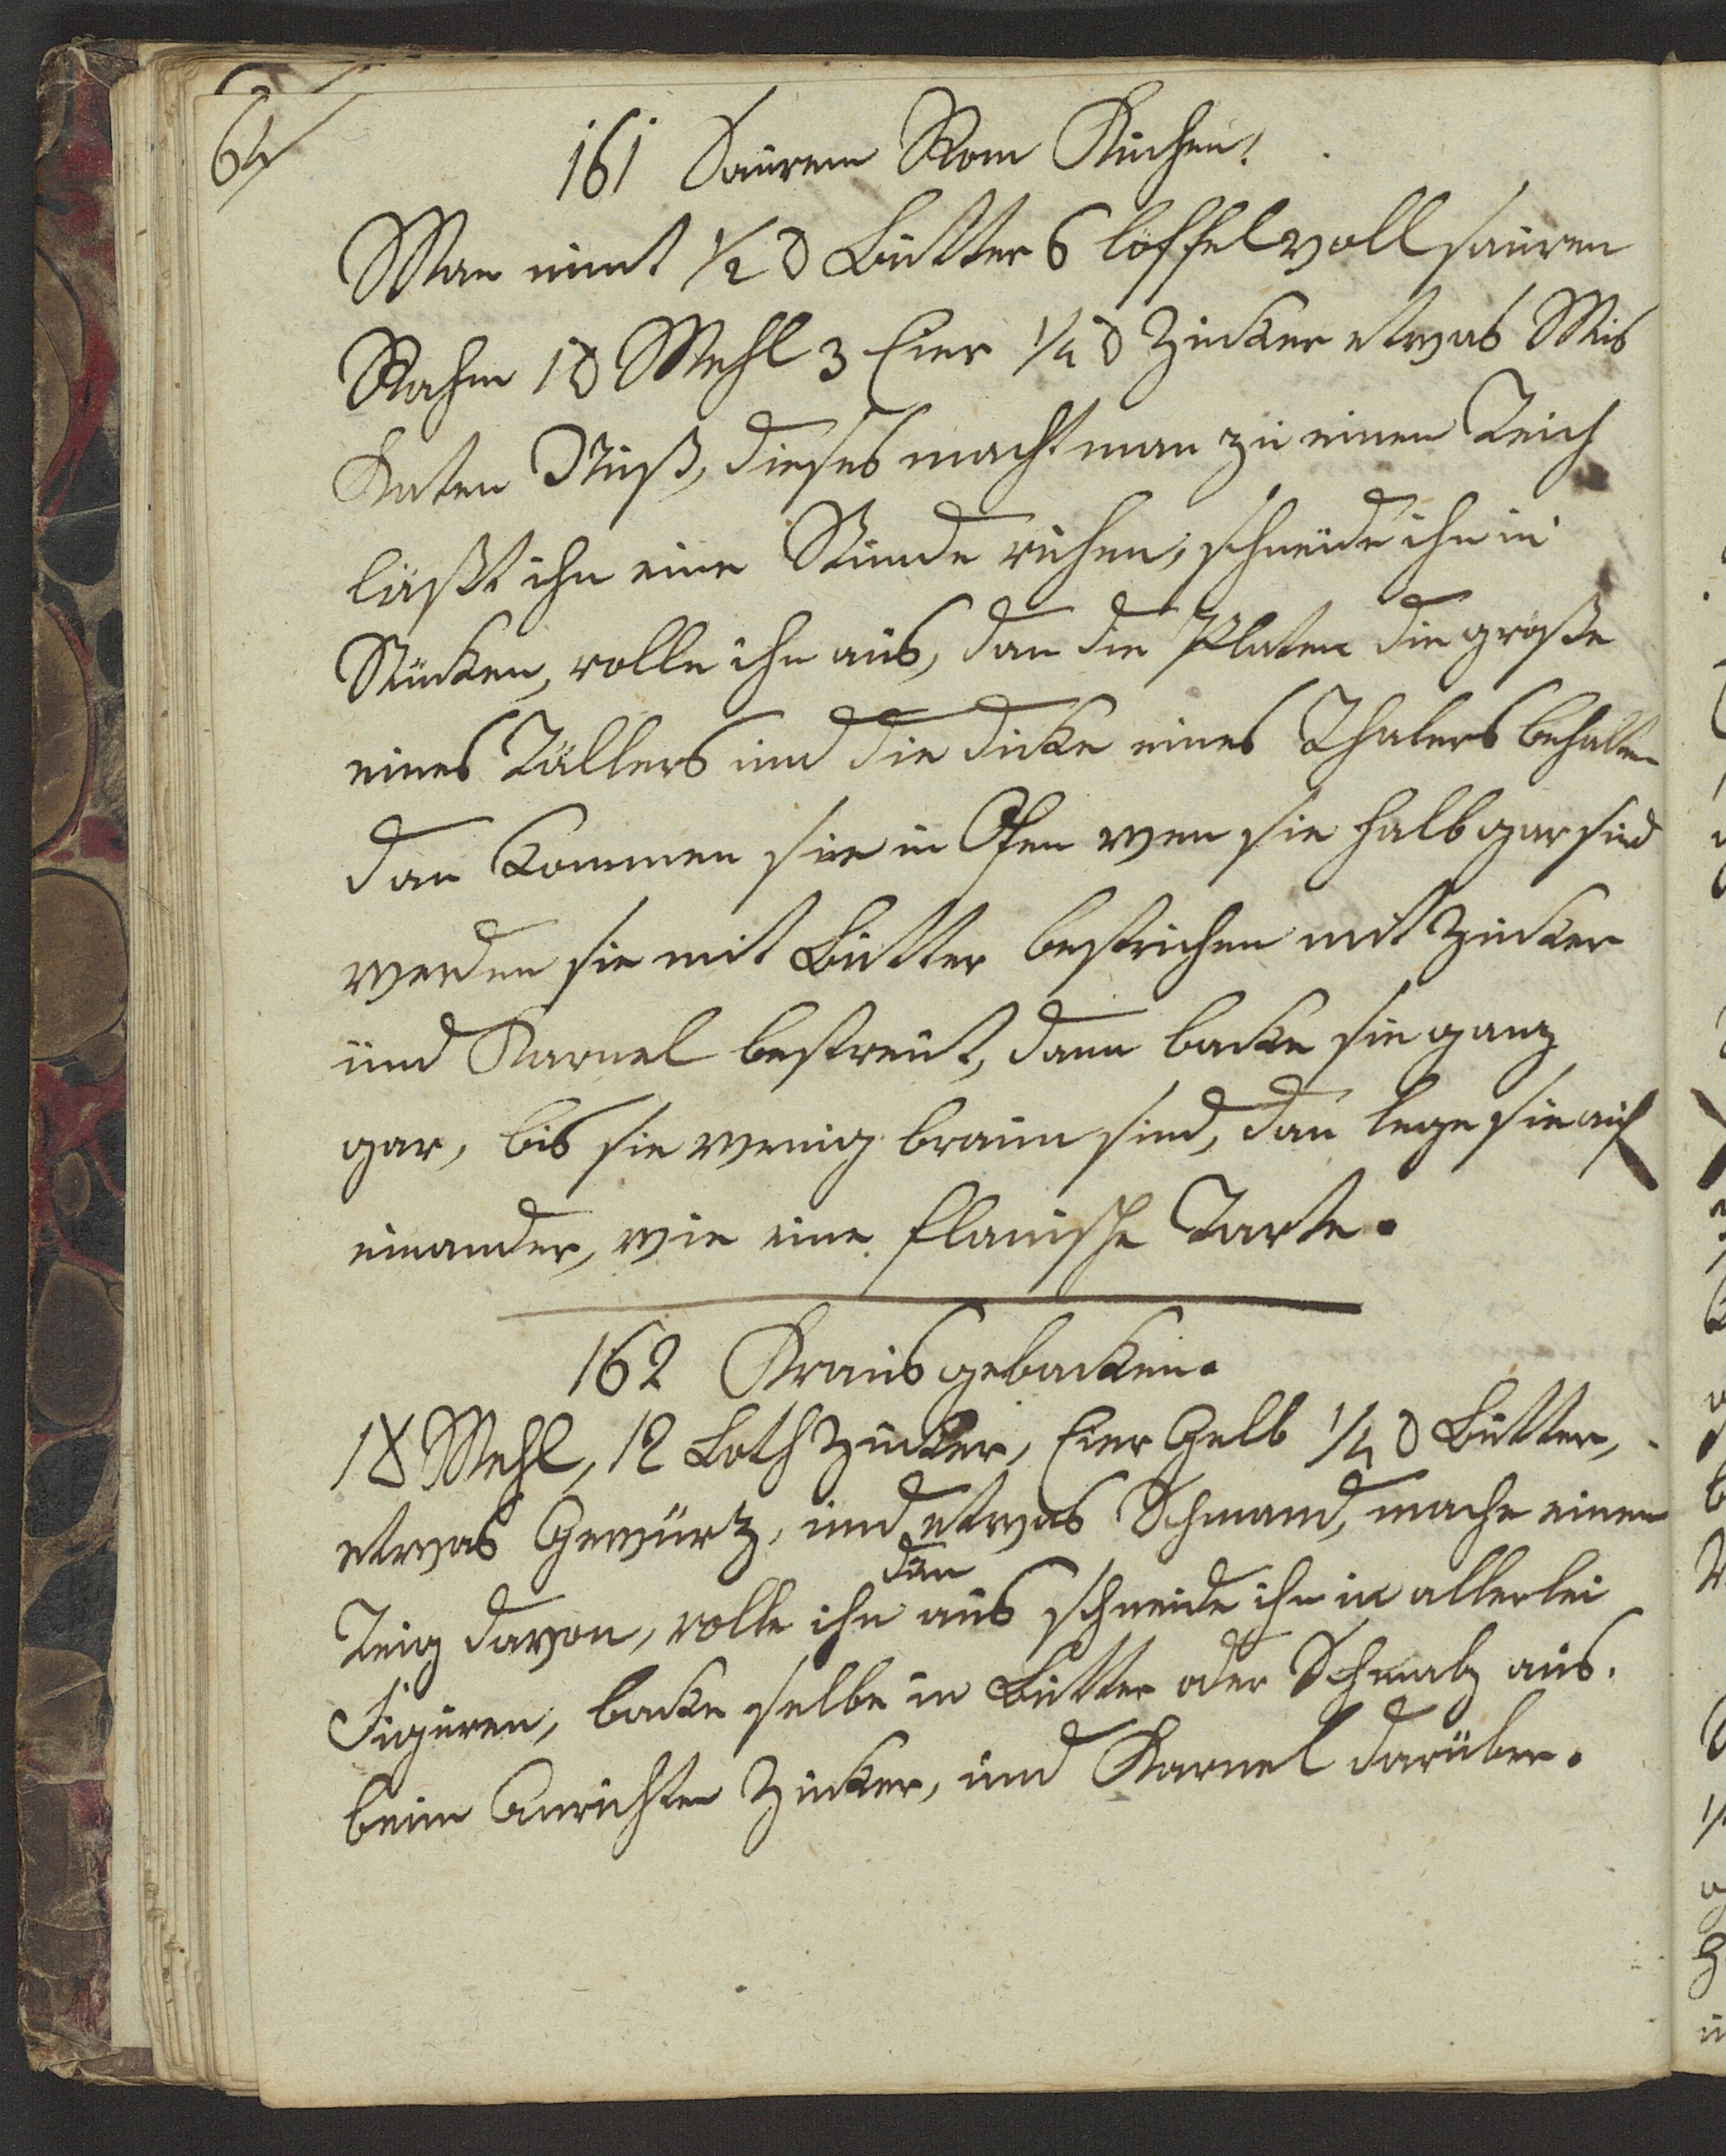 64
161 Saurem Rom Kuchen.
Man nimt ½ ℔ Butter 6 löffel voll sauren
Rahm 1 ℔ Mehl 3 Eier ¼ ℔ Zucker etwas Mus
Katen Nuß, dieses macht man zu einen Teich
läßt ihn eine Stunde ruhen, schneide ihn in
Stücken, rolle ihn aus, dan die Platen die große
eines Tällers und die dicke eines Thalers behalten
dan kommen sie in Ofen wen sie halb gar sind
werden sie mit Butter bestrichen mit Zucker
und Karnel bestreut, dann backe sie ganz
gar, bis sie wenig braun sind, dan lege sie auf
einander, wie eine flanische Tarte.
162 Kraus gebacken.
1 ℔ Mehl, 12 Loth Zucker, Eier Gelb ¼ ℔ Butter,
etwas Gewürtz, und etwas Schmand, mache einen
dan
Teig davon, rolle ihn aus schneide ihn in allerlei
Figuren, backe selbe in Butter oder Schmalz aus.
beim Anrichten Zucker, und Karnel darüber.